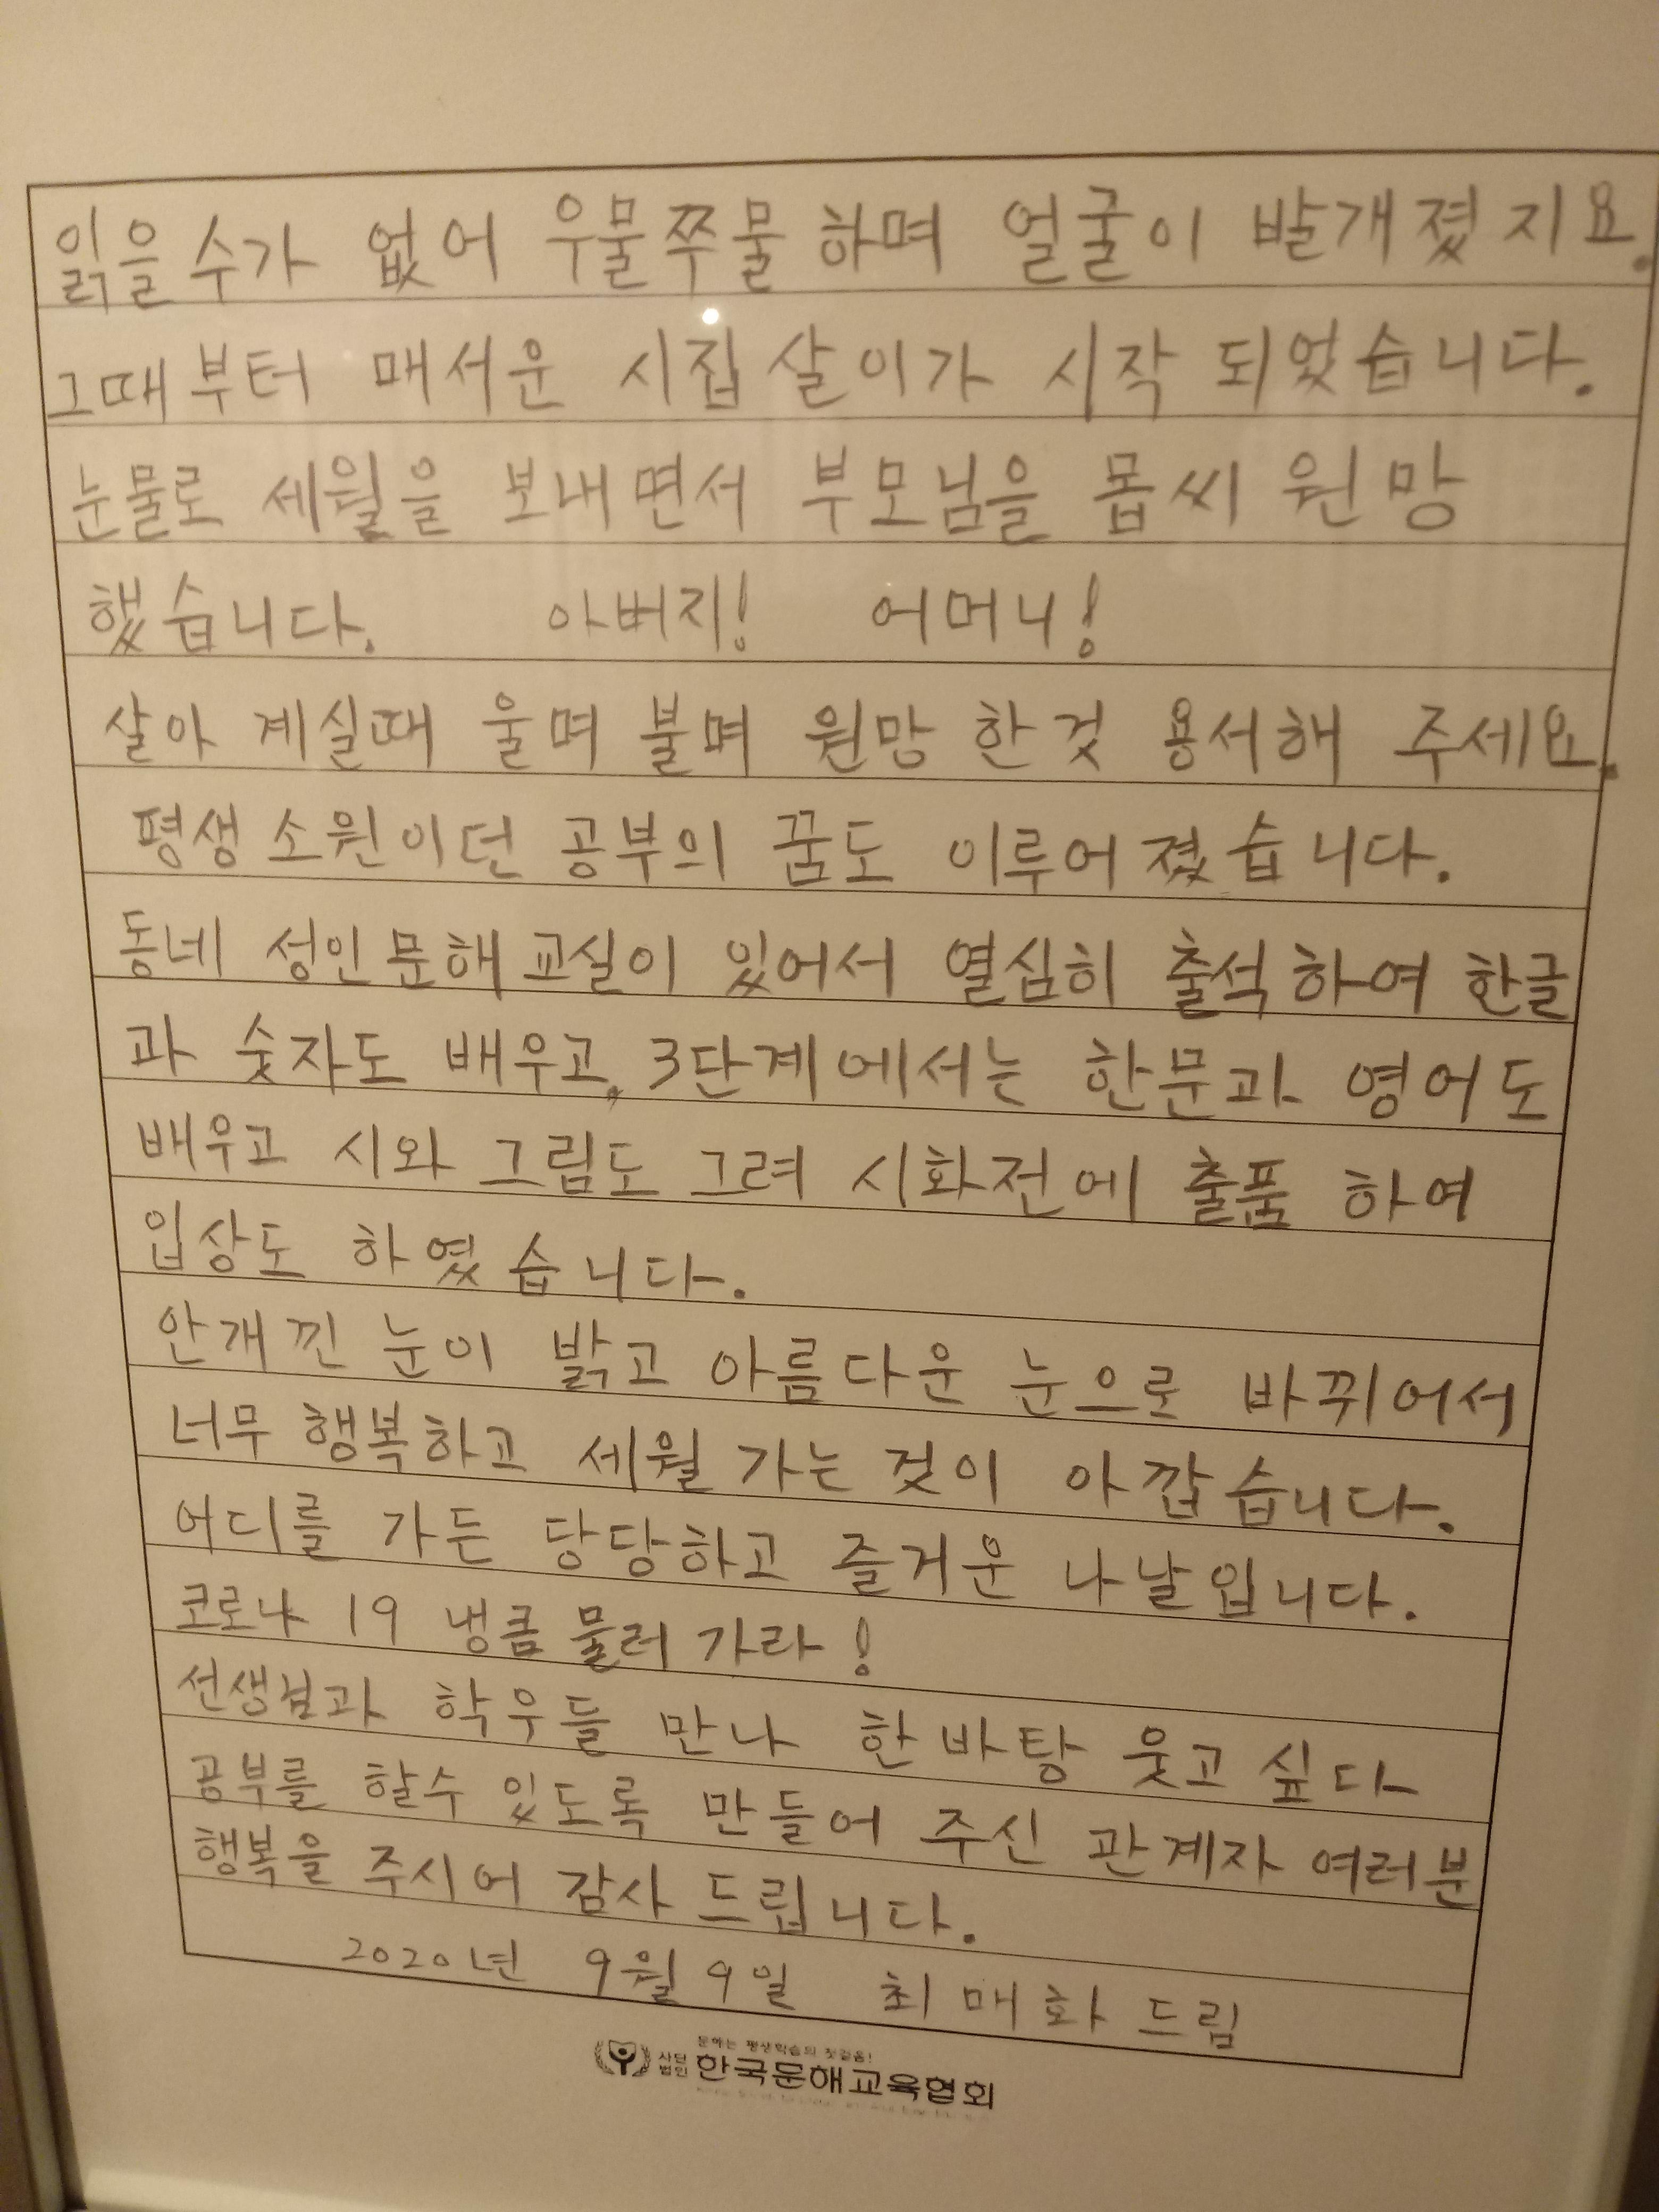 읽을수가 없어 우물쭈물하며 얼굴이 발개졌지요.
그때부터 매서운 시집살이가 시작 되었습니다.
눈물로 세월을 보내면서 부모님을 몹씨 원망
했습니다. 아버지! 어머니!
살아 계실때 울며 불며 원망 한것 용서해 주세요.
평생 소원이던 공부의 꿈도 이루어졌습니다.
동네 성인문해교실이 있어서 열심히 출석하여 한글
과 숫자도 배우고, 3단계에서는 한문과 영어도
배우고 시와 그림도 그려 시화전에 출품 하여
입상도 하였습니다.
안개낀 눈이 밝고 아름다운 눈으로 바뀌어서
너무 행복하고 세월 가는 것이 아깝습니다.
어디를 가든 당당하고 즐거운 나날입니다.
코로나 19 냉큼 물러가라!
선생님과 학우들 만나 한바탕 웃고 싶다
공부를 할수 있도록 만들어 주신 관계자 여러분
행복을 주시어 감사 드립니다.
2020년 9월 9일 최매화 드림
문해는 평생학습의 첫걸음!
사단법인 한국문해교육협회